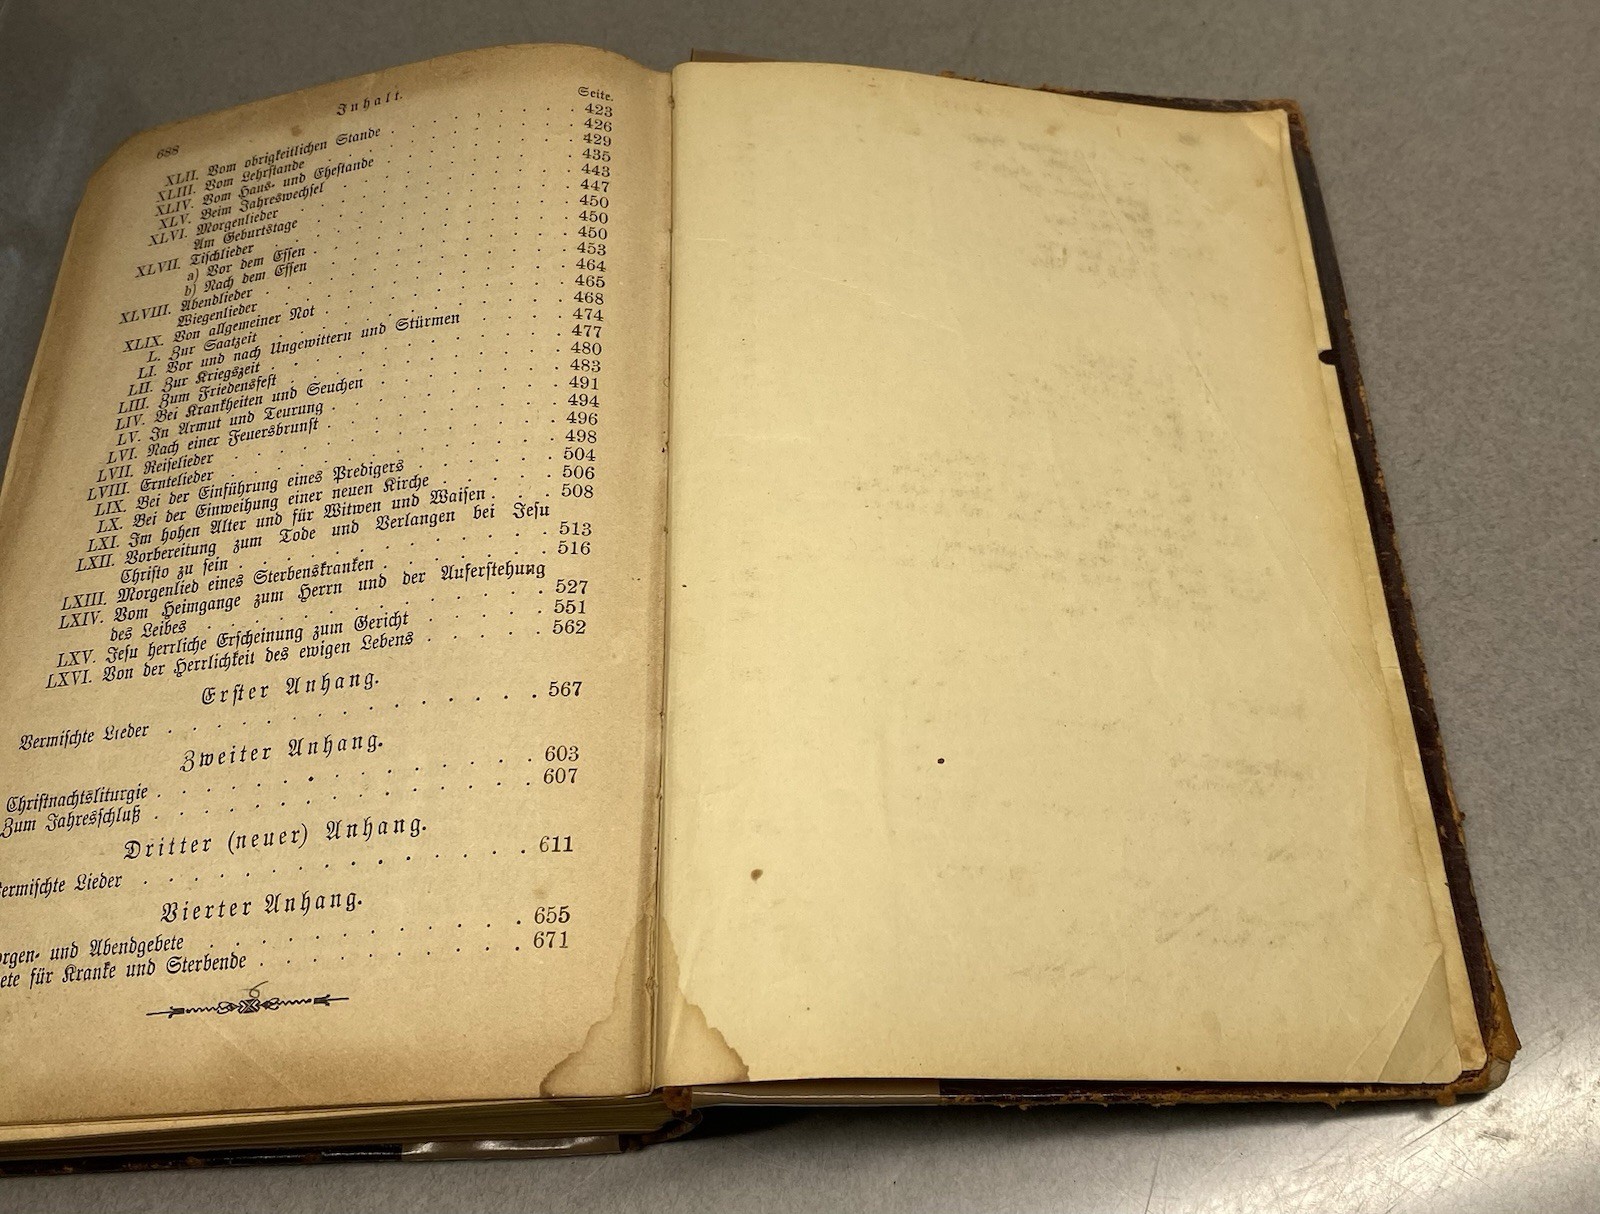 688
Inhalt.
Seite.
XLII. Vom obrigkeitlichen Stande . . . . . . 423
XLIII. Vom Lehrstande . . . . . . 426
XLIV. Vom Haus- und Ehestande . . . . . . 429
XLV. Beim Jahreswechsel . . . . . . 435
XLVI. Morgenlieder . . . . . . 443
Am Geburtstage . . . . . . 447
XLVII. Tischlieder . . . . . . 450
a) Vor dem Essen . . . . . . 450
b) Nach dem Essen . . . . . . 450
XLVIII. Abendlieder . . . . . . 453
Wiegenlieder . . . . . . 464
XLIX. Von allgemeiner Not . . . . . . 465
L. Zur Saatzeit . . . . . . 468
LI. Vor und nach Ungewittern und Stürmen . . . . 474
LII. Zur Kriegszeit . . . . . . 477
LIII. Zum Friedensfest . . . . . . 480
LIV. Bei Krankheiten und Seuchen . . . . . . 483
LV. In Armut und Teurung . . . . . . 491
LVI. Nach einer Feuersbrunst . . . . . . 494
LVII. Reiselieder . . . . . . 496
LVIII. Erntelieder . . . . . . 498
LIX. Bei der Einführung eines Predigers . . . . . 504
LX. Bei der Einweihung einer neuen Kirche . . . . 506
LXI. Im hohen Alter und für Witwen und Waisen . . . 508
LXII. Vorbereitung zum Tode und Verlangen bei Jesu
Christo zu sein . . . . . . 513
LXIII. Morgenlied eines Sterbenskranken . . . . . . 516
LXIV. Vom Heimgange zum Herrn und der Auferstehung
des Leibes . . . . . . 527
LXV. Jesu herrliche Erscheinung zum Gericht . . . . 551
LXVI. Von der Herrlichkeit des ewigen Lebens . . . . 562
Erster Anhang.
Vermischte Lieder . . . . . . 567
Zweiter Anhang.
Christnachtsliturgie . . . . . . 603
Zum Jahresschluß . . . . . . 607
Dritter (neuer) Anhang.
ermischte Lieder . . . . . . 611
Vierter Anhang.
rgen- und Abendgebete . . . . . . 655
ete für Kranke und Sterbende . . . . . . 671
6